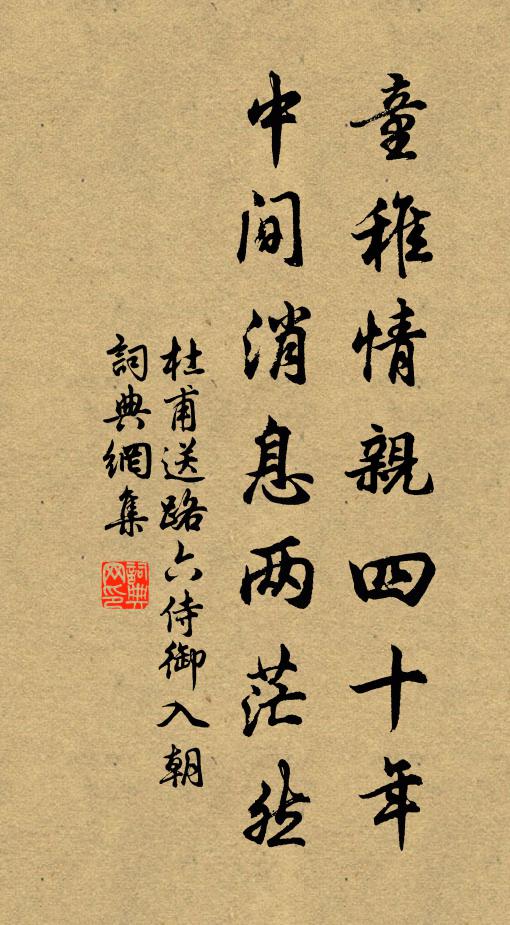 童稚情親四十年
中间消息两茫然
杜甫送路六侍御入朝
詞典網集
詞典网印